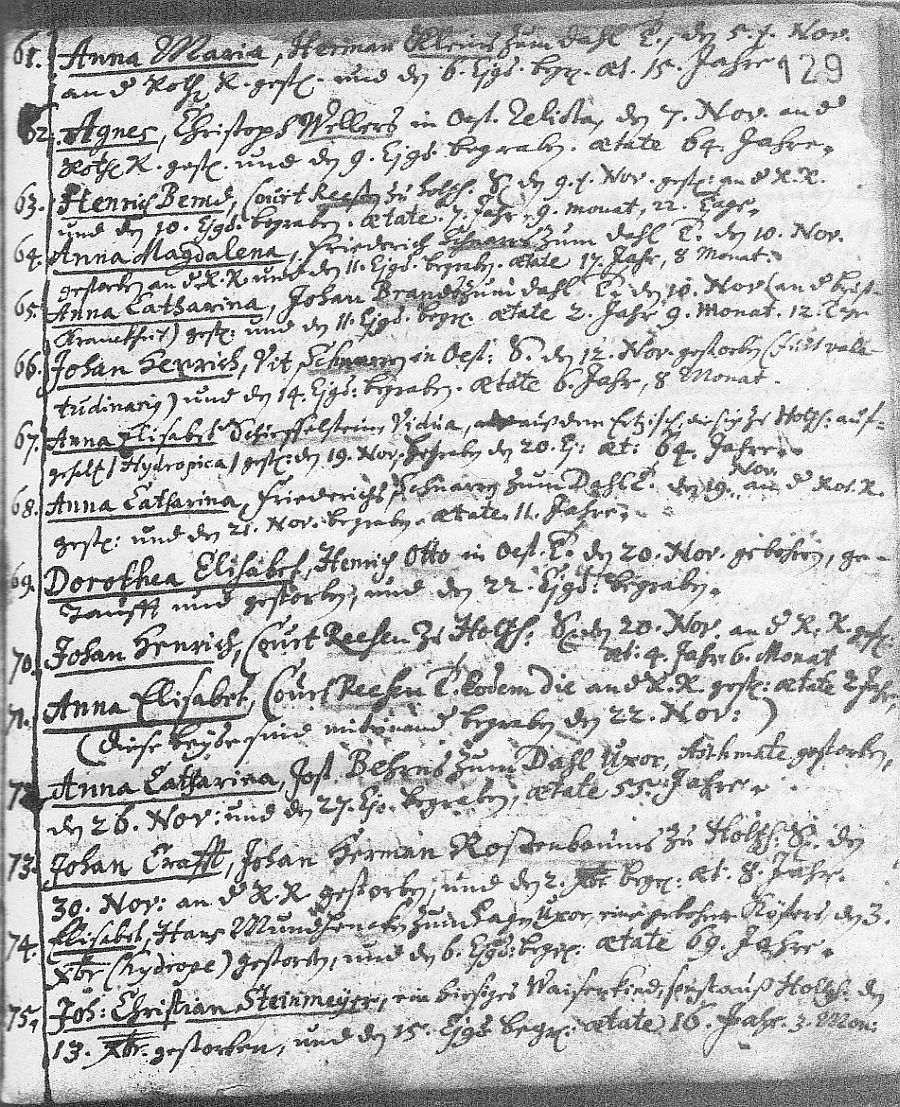 61. Anna Maria, Herman Kleins zum Dahl T., den 5. Nov.
an d Roth. R. gest. und den 6. Ejgd. begr. æt. 15. Jahre
129
62. Agnes, Christoph Wellers in Oest. Relicta, den 7. Nov. an d
Roth. R. gest. und den 9. Ejgd. begraben. ætate 64. Jahre.
63. Henrich Bernd, Court Reesen zu Holth. S. den 9. Nov. gest. an d R. R.
und den 10. Ejgd. begraben. ætate. 7. Jahr. 9. monat, 22. Tage.
64. Anna Magdalena, Friederich Schnarrs zum Dahl T. den 10. Nov.
gestorben an d R. R und den 11. Ejgd. begraben. ætate 17. Jahr, 8 Monat.
65. Anna Catharina, Johan Brands zum Dahl T. den 10. Nov. (an d Brust-
kranckheit) gest: und den 11. Ejgd. begr. ætate 2. Jahr 9. monat. 12. Tage
66. Johan Henrich, Vit Schnarrn in Oest: S. den 12. Nov. gestorben (fuit vale-
tudinarig) und den 14. Ejgd: begraben. ætate 6. Jahr, 8 Monat.
67. Anna Elisabet Schieffelstein Vidua, aus dem die sich zu Holth: auf-
gehalt / Hydropica / gest: den 19. Nov. begraben den 20. Ej: æt: 64. Jahre.
68. Anna Catharina, Friederichs Schnarrn zum Dahl T. den 19. Nov. an d Rot. R.
gest: und den 21. Nov. begraben. ætate 11. Jahre.
69. Dorothea Elisabet, Henrich Otto in Oest. T. den 20. Nov. gebohren, ge-
taufft und gestorben, und den 22. Ejgd: begraben.
70. Johan Henrich, Court Reesen zu Holth: S. den 20. Nov. an d R. R. gest:
æt: 4. Jahr 6. Monat
71. Anna Elisabet, Court Reesen T. Eodem die an d R. R. gest: ætate 2 Jahr,
(diese beyde sind miteinand begraben den 22. Nov: )
72. Anna Catharina, Jost Behrns zum Dahl Uxor, Asthmate gestorben,
den 26. Nov: und den 27. Ej. begraben, ætate 55. Jahre.
73. Johan Crafft, Johan Herman Rosenbaums zu Holth: S. den
30. Nov: an d R. R gestorben, und den 2. Xbr begr: æt: 8. Jahr.
74. Elisabet, Hans Mundhencke zum Hagen Uxor, eine gebohrne Kösters den 3.
Xbr (hydrope) gestorben, und den 6. Ejgd: begr. ætate 69. Jahre.
75. Joh: Christian Steinmeyer, ein hiesiges Waisenkind, sonst auß Holth: den
13. Xbr. gestorben, und den 15. Ejgd begr: ætate 16. Jahr. 3. Mon: